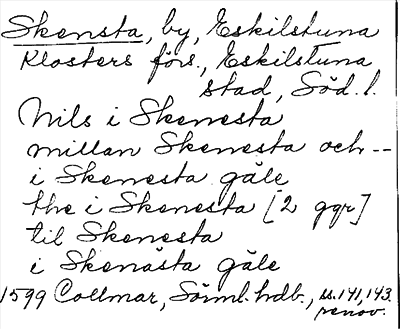 Skensta, by, Eskilstuna
Klosters förs., Eskilstuna
stad, Söd. l.
Nils i Skenesta
millan Skenesta och --
i Skenesta gäle
the i Skenesta [2 ggr]
til Skenesta
i Skenästa gäle
1599 Collmar, Sörml. hdb., ss. 141, 143.
renov.